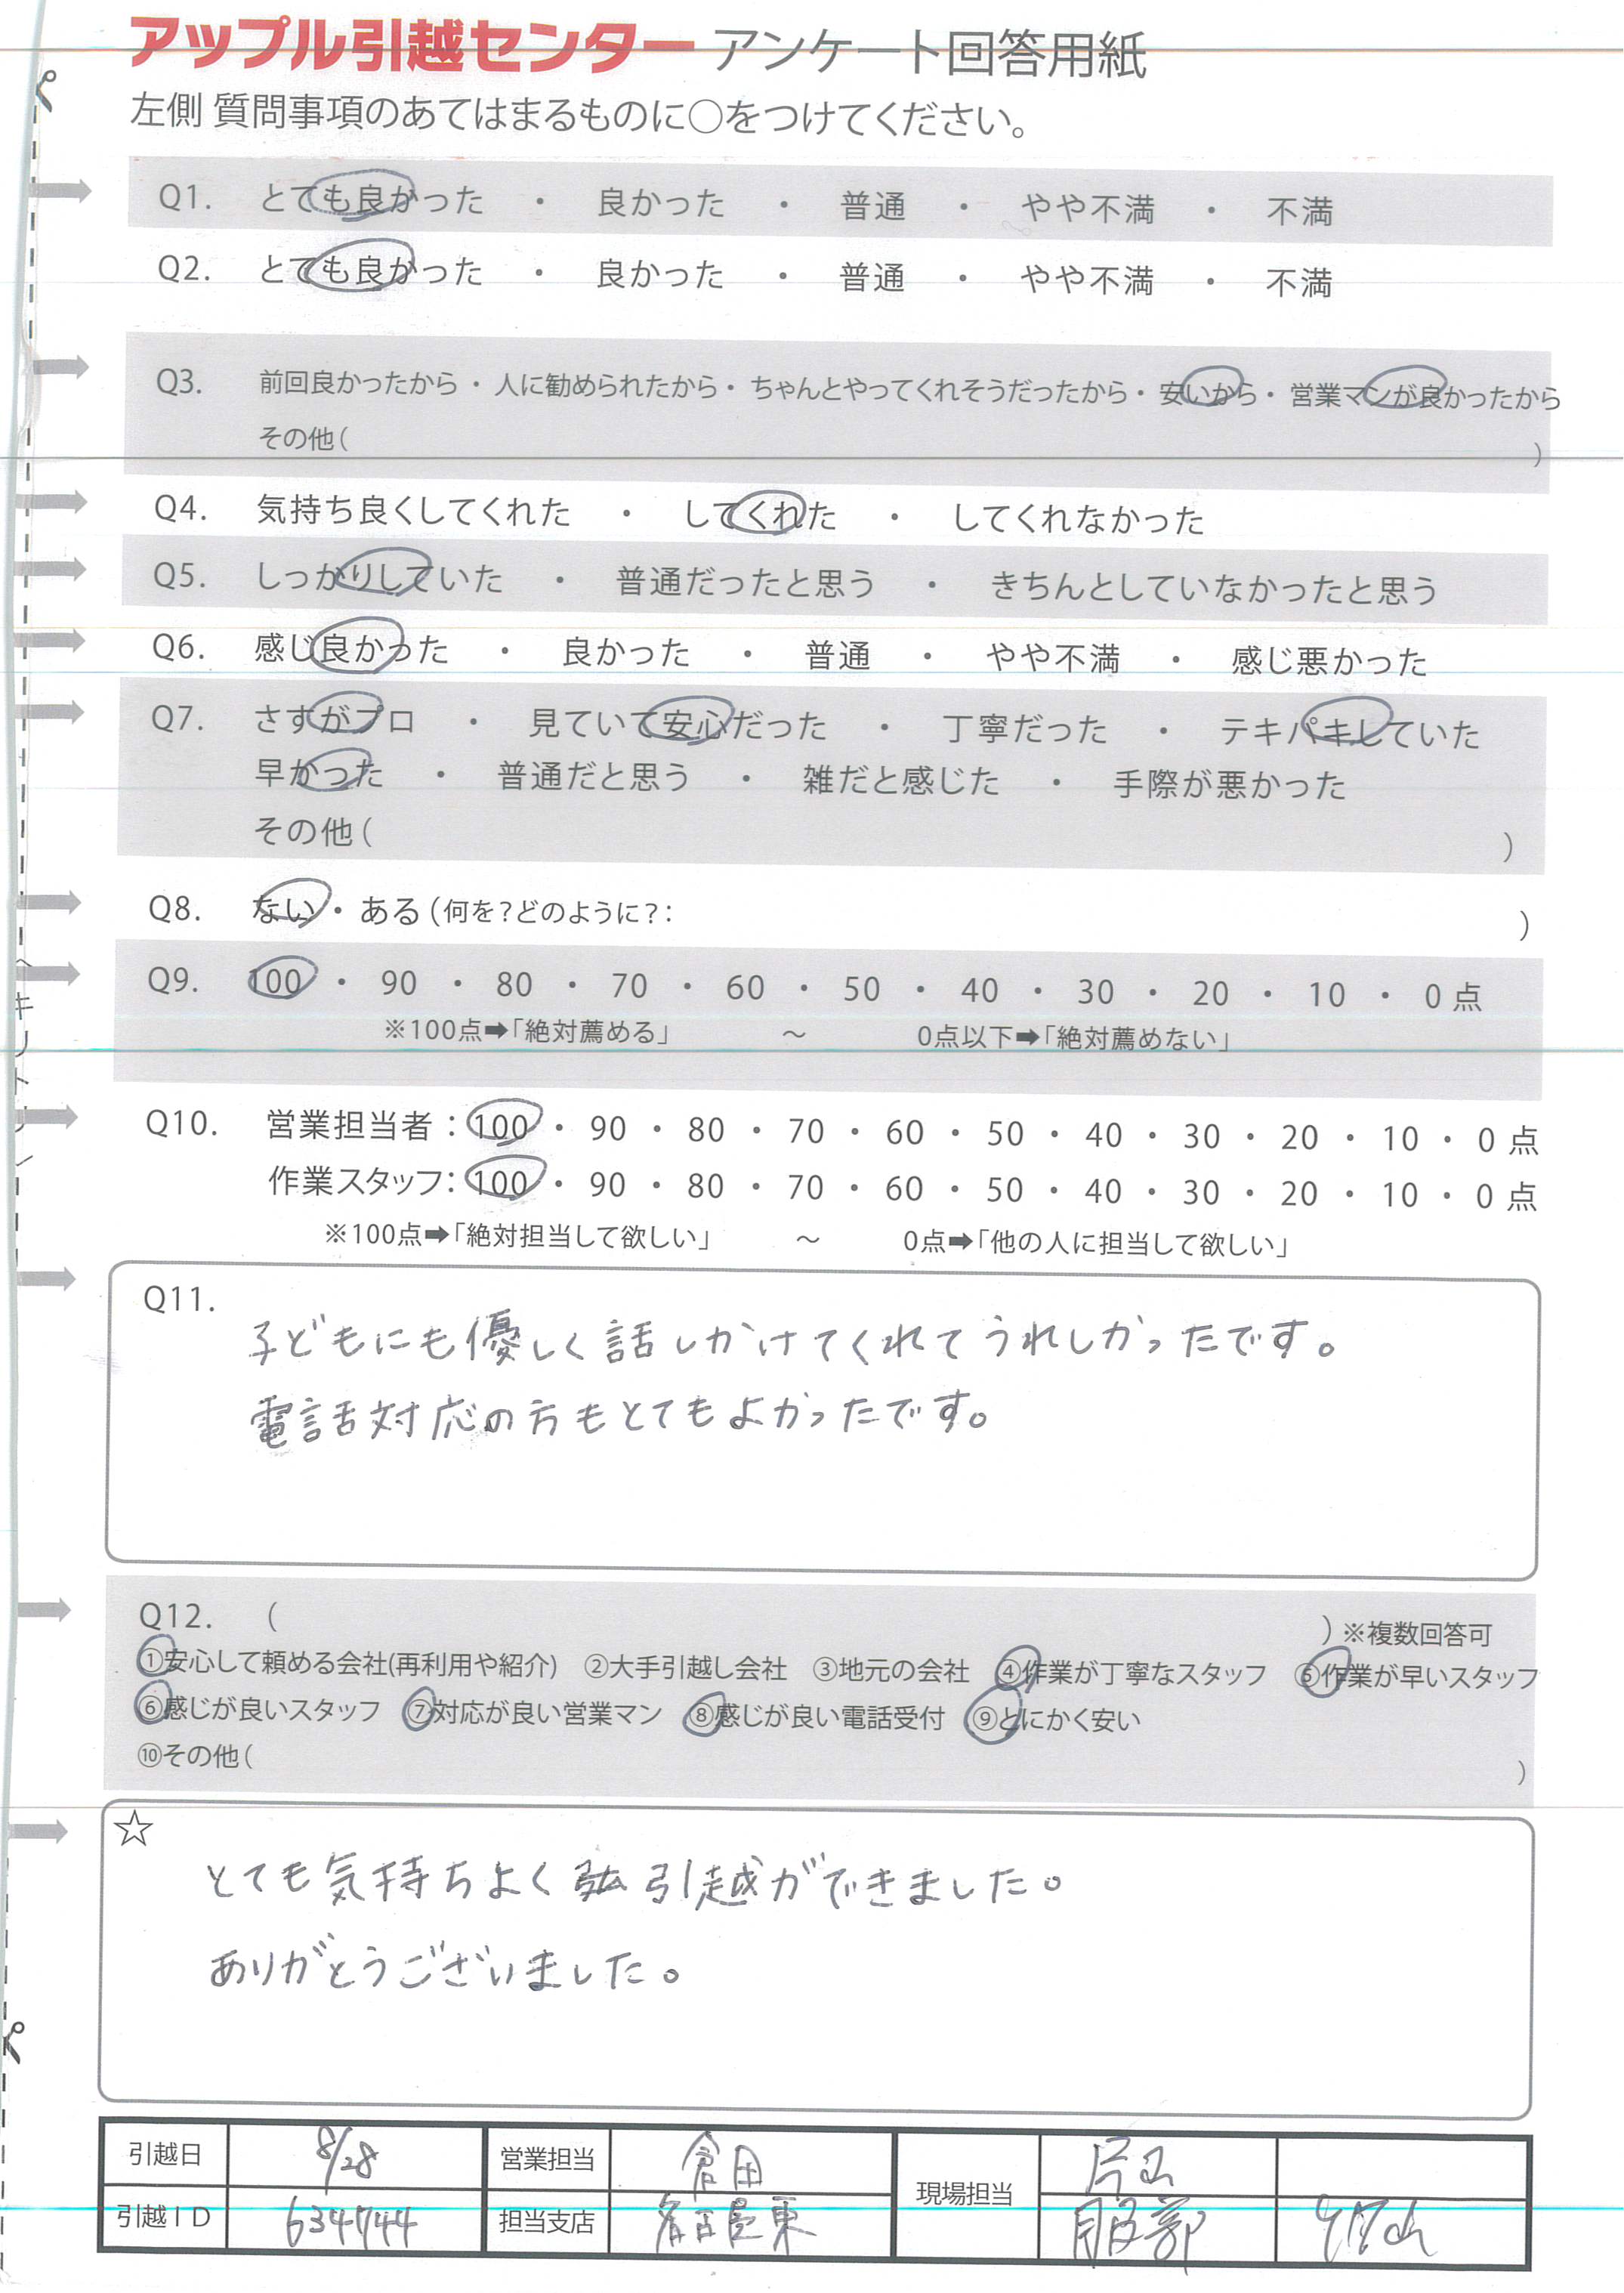 アップル引越センター アンケート回答用紙
左側 質問事項のあてはまるものに○をつけてください。
Q1. とても良かった ・ 良かった ・ 普通 ・ やや不満 ・ 不満
Q2. とても良かった ・ 良かった ・ 普通 ・ やや不満 ・ 不満
Q3. 前回良かったから ・ 人に勧められたから ・ ちゃんとやってくれそうだったから ・ 安いから ・ 営業マンが良かったから
その他( )
Q4. 気持ち良くしてくれた ・ してくれた ・ してくれなかった
Q5. しっかりしていた ・ 普通だったと思う ・ きちんとしていなかったと思う
Q6. 感じ良かった ・ 良かった ・ 普通 ・ やや不満 ・ 感じ悪かった
Q7. さすがプロ ・ 見ていて安心だった ・ 丁寧だった ・ テキパキしていた
早かった ・ 普通だと思う ・ 雑だと感じた ・ 手際が悪かった
その他( )
Q8. ない ・ ある(何を?どのように?: )
Q9. 100 ・ 90 ・ 80 ・ 70 ・ 60 ・ 50 ・ 40 ・ 30 ・ 20 ・ 10 ・ 0点
※100点➡「絶対薦める」 ～ 0点以下➡「絶対薦めない」
Q10. 営業担当者:100 ・ 90 ・ 80 ・ 70 ・ 60 ・ 50 ・ 40 ・ 30 ・ 20 ・ 10 ・ 0点
作業スタッフ:100 ・ 90 ・ 80 ・ 70 ・ 60 ・ 50 ・ 40 ・ 30 ・ 20 ・ 10 ・ 0点
※100点➡「絶対担当して欲しい」 ～ 0点➡「他の人に担当して欲しい」
Q11.
子どもにも優しく話しかけてくれてうれしかったです。
電話対応の方もとてもよかったです。
Q12. ( )※複数回答可
①安心して頼める会社(再利用や紹介) ②大手引越し会社 ③地元の会社 ④作業が丁寧なスタッフ ⑤作業が早いスタッフ
⑥感じが良いスタッフ ⑦対応が良い営業マン ⑧感じが良い電話受付 ⑨とにかく安い
⑩その他( )
☆
とても気持ちよく引越ができました。
ありがとうございました。
引越日 8/28 営業担当 倉田 現場担当 片山
引越ID 634744 担当支店 名古屋東 服部
キリトリ